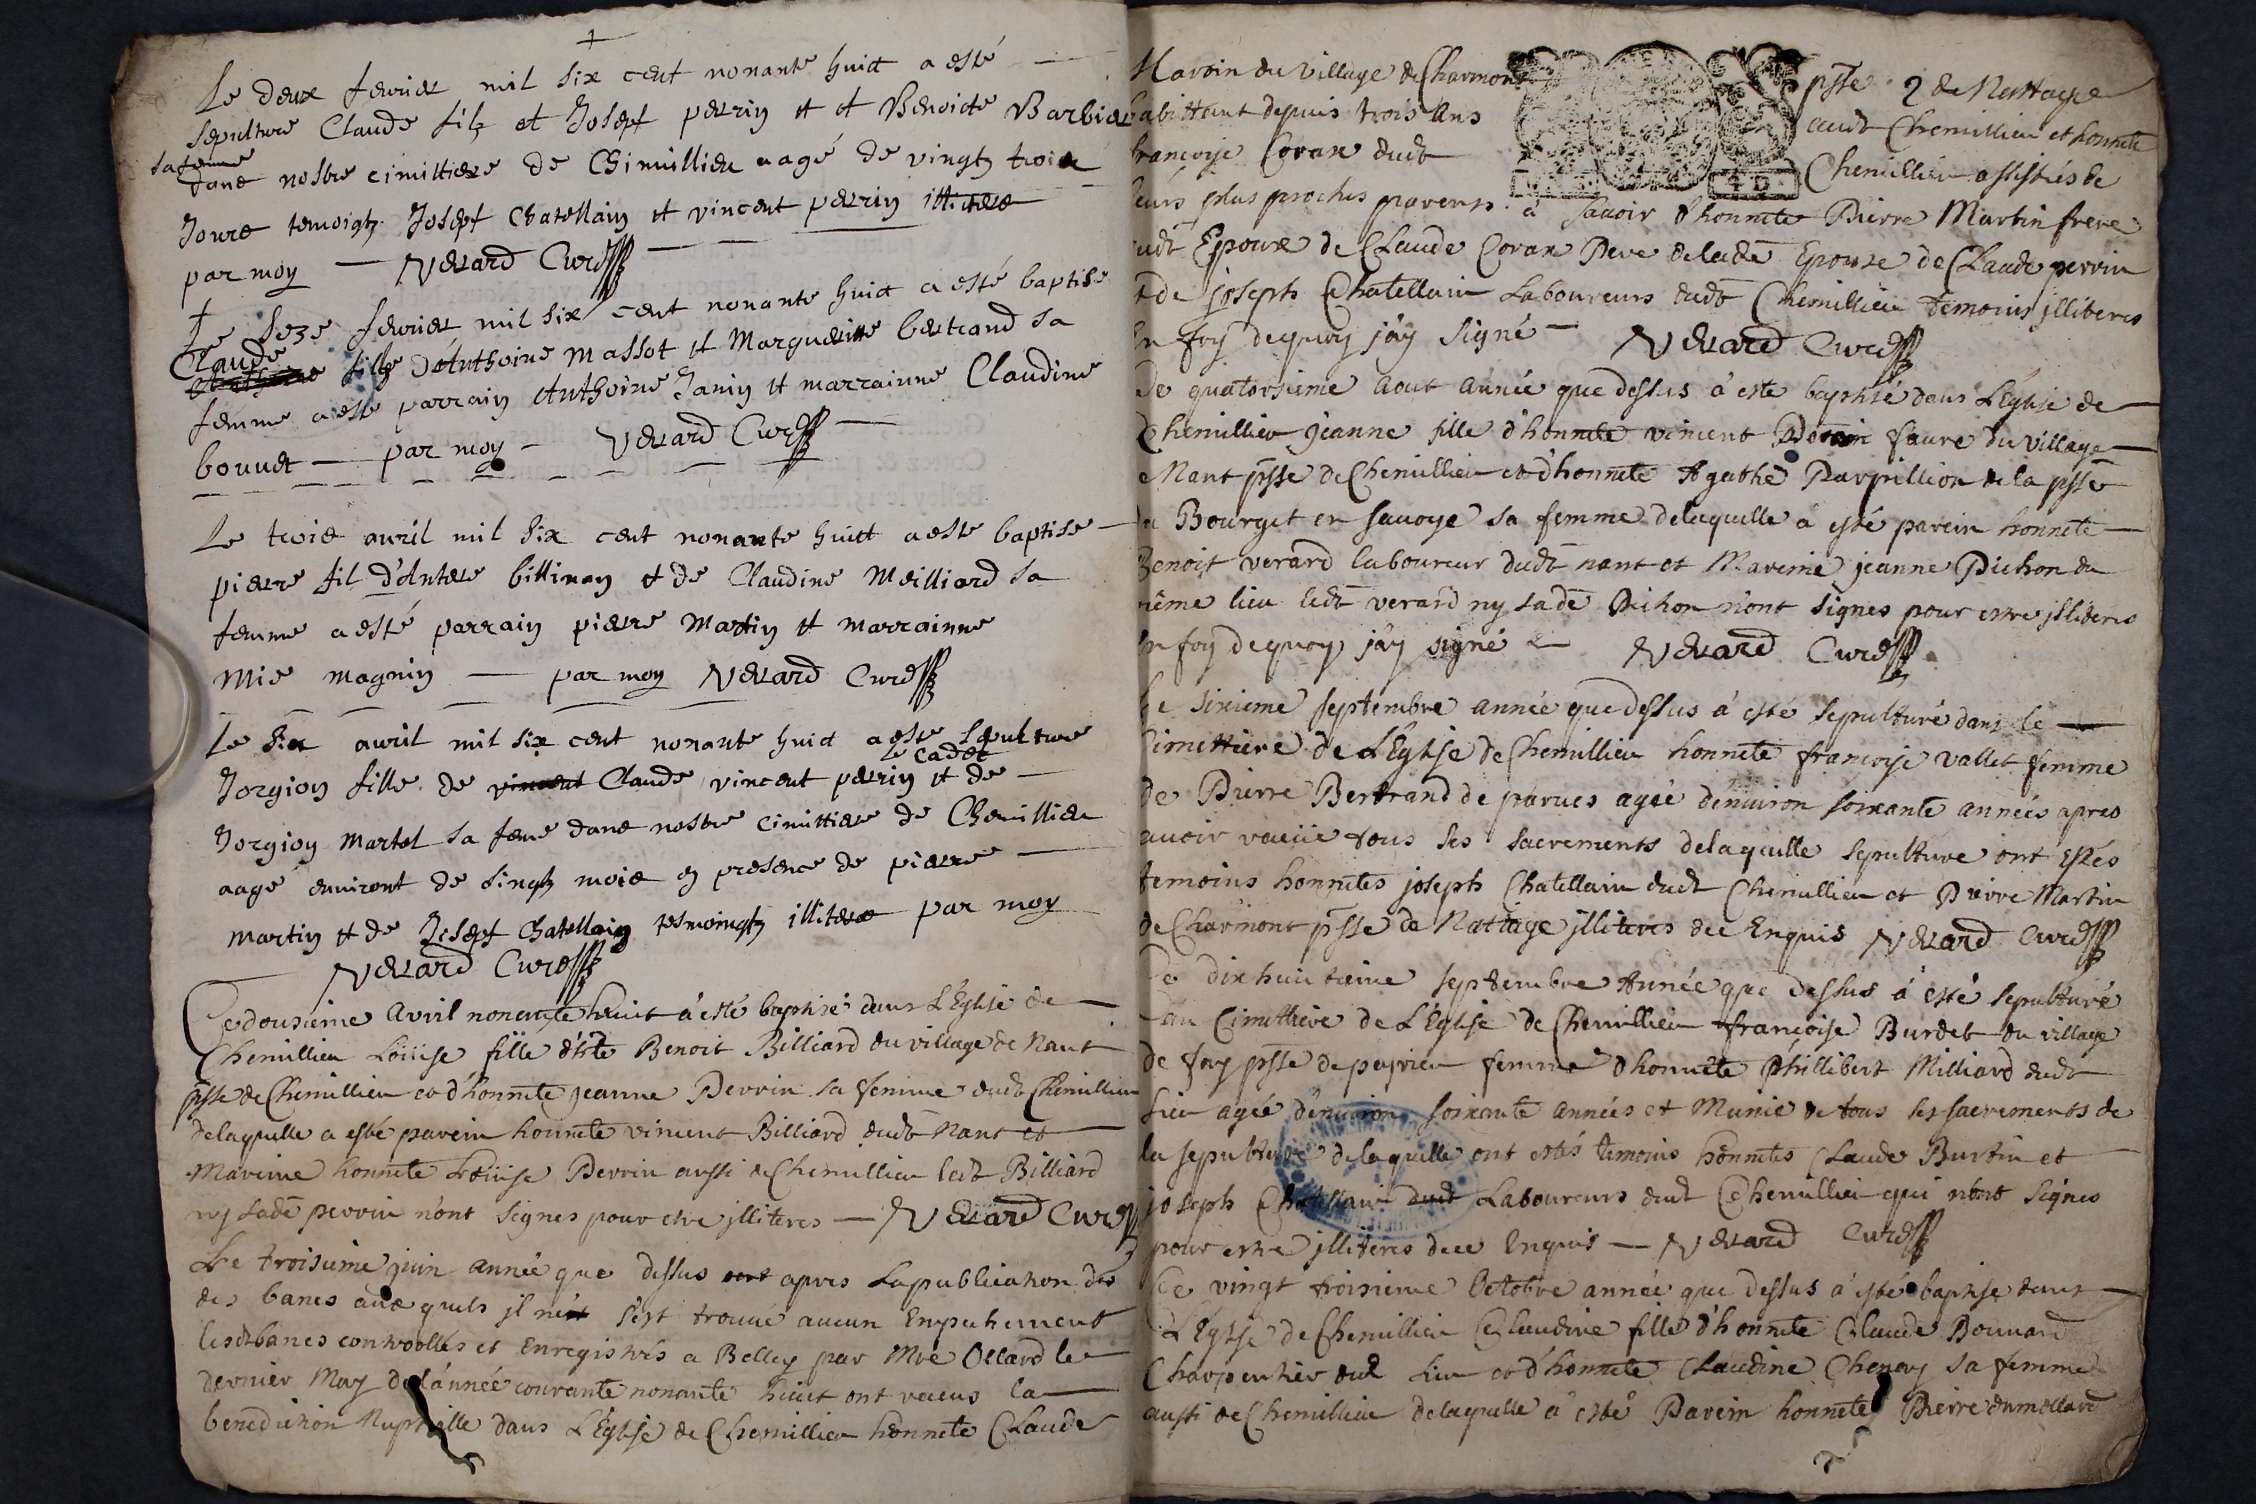 Le deux feurier mil six cent nonante huict a esté
sepulture Claude filz et Josepf perrin et et Benoicte Barbier
sa femme
dans nostre cimittiere de Chimillieu aagé de vingtz trois
Jours temoigtz Josepf Chatellain et vincent perrin illiteres
par moy Verard Curé
Le seze feurier mil six cent nonante huict a esté baptise
Claude
filz d'Anthoine Massot et Marguerite bertrand sa
femme a esté parrain Anthoine Janin et marrainne Claudine
bouuet par moy Verard Curé
Le trois auril mil six cent nonante huict a esté baptise
pierre fil d'Antere billinan et de Claudine Meilliard sa
femme a esté parrain pierre Martin et marrainne
Mie magnin par moy Verard Curé
Le six auril mil six cent nonante huict a esté sepulture
le cadet
Jorgion fille de vincent Claude vincent perrin et de
Jorgion Martel sa feme dans nostre cimittiere de Chemillieu
aagé enuiront de singtz mois en presence de pierre
martin et de Josepf Chatellain tesmoingtz illiteres par moy
Verard Curé
Ce dousieme Avril nonante huit à esté baptisé dans L'Eglise de
Chemillieu Loüise fille d'hte Benoit Billiard du village de Nant
psse de Chemillieu et d'honnete jeanne Perrin sa femme dudt Chemillieu
delaquelle a esté parein honnete vincent Billiard dudt Nant et
Mareine honnete Loüise Perrin aussi de Chemillieu ledt Billiard
ny ladē perrin n'ont signes pour etre jlliteres Verard Curé
Le troisieme juin année que dessus apres la publication des
des bancs aux quels jl n'est s'est trouué aucun Empechement
lesdt bancs controollés et Enregistrés a Belley par Mre Ollard le
dernier May de l'année courante nonante huict ont receus la
benediction Nuptialle dans L'Eglise de Chemillieu honnete Claude
Martin du village de Charmont psse de Nattage
habittant depuis trois Ans audt Chemillieu et honnete
francoise Corax dudt Chemillieu assistés de
leurs plus proches parents à sauoir d'honnete Pierre Martin frere
dudt Epoux de Claude Corax Pere de ladē Epouse de Claude perrin
et de joseph Chatellain Laboureurs dudt Chemillieu temoins jlliteres
En foy dequoy j'ay signé Verard Curé
Le quatorsieme aout année que dessus à este baptisé dans L'Eglise de
Chemillieu jeanne fille d'honnete vincent faure du village
de Nant psse de Chemillieu et d'honnete Agathe Parpillion de la psse
du Bourget en sauoye sa femme delaquelle à esté parein honnete
Benoit verard laboureur dudt nant et Mareine jeanne Pichon du
même lieu ledt verard ny ladē Pichon n'ont signes pour estre jlliteres
En foy dequoy j'ay signé Verard Curé
Le sixieme septembre année que dessus à esté sepulturé dans le
Cimettiere de L'Eglise de Chemillieu honnete francoise vallet femme
de Pierre Bertrand de parues agée d'enuiron soixante années apres
auoir receüe tous ses sacrements delaquelle sepulture ont Estés
temoins honnetes joseph Chatellain dudt Chemillieu et Pierre Martin
de Charmont psse de Nattage jlliteres dee Enquis Verard Curé
Le dixhuictieme septembre Année que dessus à esté sepulturé
au Cimettiere de L'Eglise de Chemillieu francoise Burdet du village
de fay psse de peyrieu femme d'honnete Phillibert Milliard dudt
Lieu agée d'enuiron soixante années et Munie de tous ses sacrements de
la sepulture delaquelle ont estés temoins honnetes Claude Burtin et
joseph Chatellain dudt Laboureurs dudt Chemillieu qui n'ont signes
pour estre jlliteres dece Enquis Verard Curé
Le vingt troisieme Octobre année que dessus à esté baptisé dans
L'Eglise de Chemillieu Claudine fille d'honnete Claude Bouuard
Charpentier dudt Lieu et d'honnete Claudine Cheney sa femme
aussi de Chemillieu delaquelle à esté Parein honnete Pierre dumollard